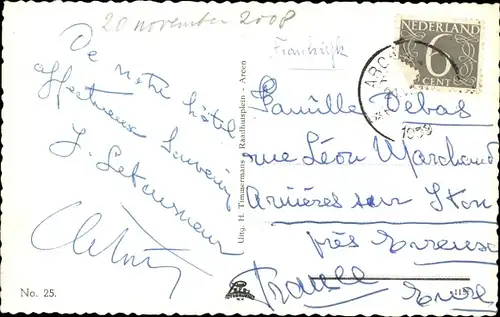 20 november 2008
De notre hôtel
affectueux Souvenir
J.
No. 25.
Uitg. H. Timmermans - Raadhuisplein - Arcen
Frankrijk
NEDERLAND
6
CENT
ARC
1959
Famille Debas
rue Léon Marchand
Asnières sur Iton
près Evreux
France
Eure